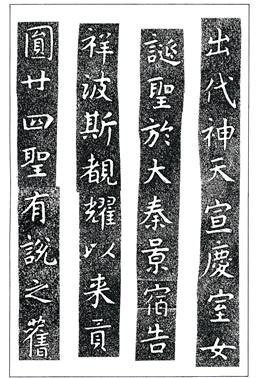 出代神天宣慶室女
誕聖於大秦景宿告
祥波斯覩耀以来貢
圎廿四聖有說之舊